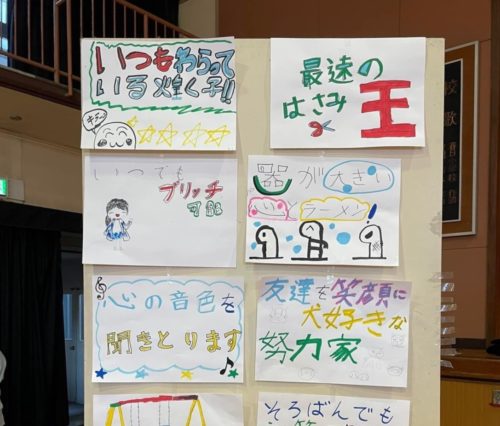 いつもわらって
いる煌く子!!
キラーン
最速の
はさみ
王
いつでも
ブリッチ
可能
器が大きい
心の音色を
聞きとります
友達を笑顔に
犬好きな
努力家
そろばんでも
校歌